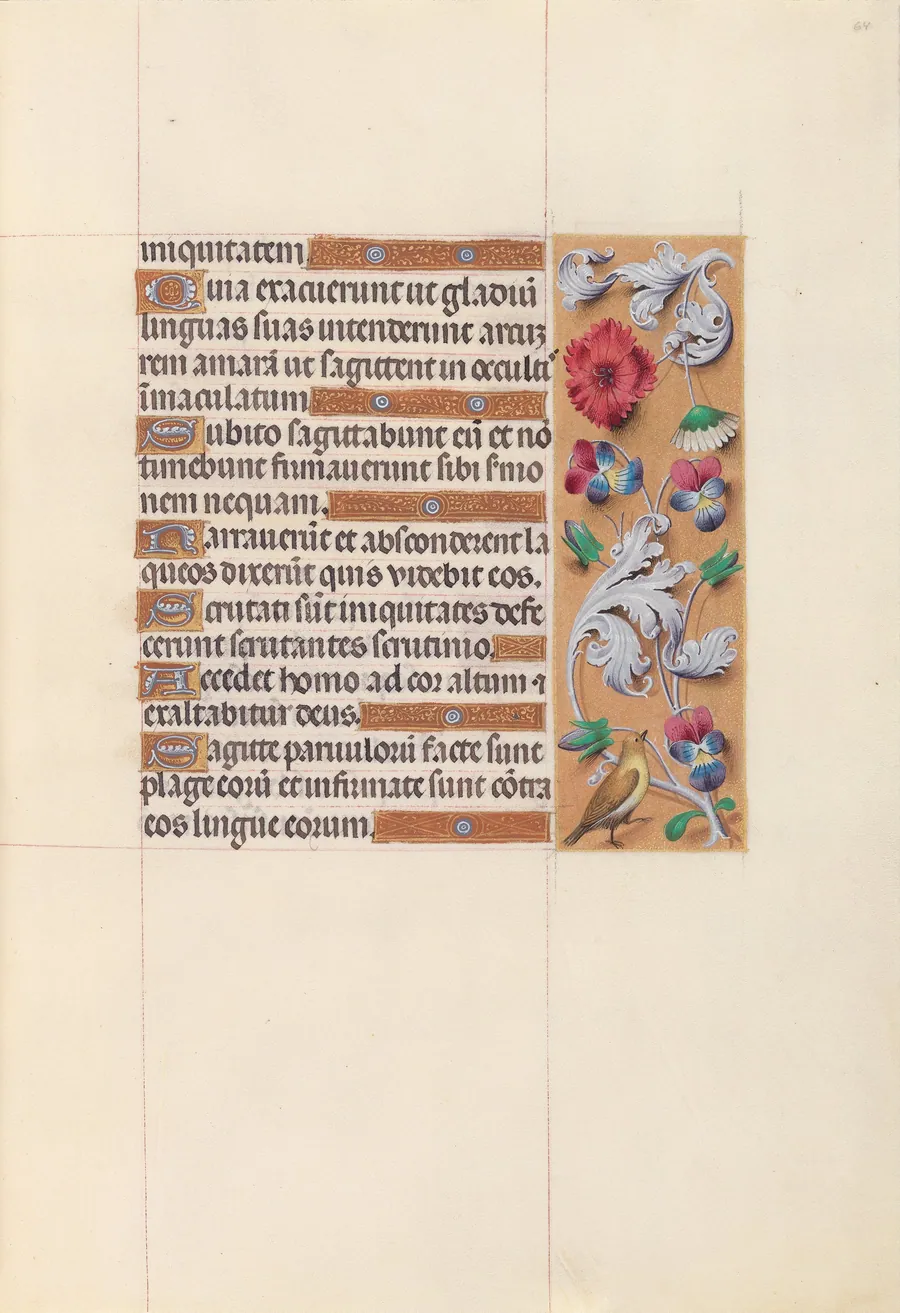 64
iniquitatem.
Quia exacuerunt ut gladiū
linguas suas intenderunt arcuʒ
rem amarā ut sagittent in occulti
īmaculatum
Subito sagittabunt eū et nō
timebunt firmauerunt sibi s̕mo
nem nequam.
Narrauerūt et absconderent la
queos dixerūt quis videbit eos.
Scrutati sūt iniquitates defe
cerunt scrutantes scrutinio.
Accedet homo ad cor altum ⁊
exaltabitur deus.
Sagitte paruulorū facte sunt
plage eorū et infirmate sunt cōtra
eos lingue eorum.